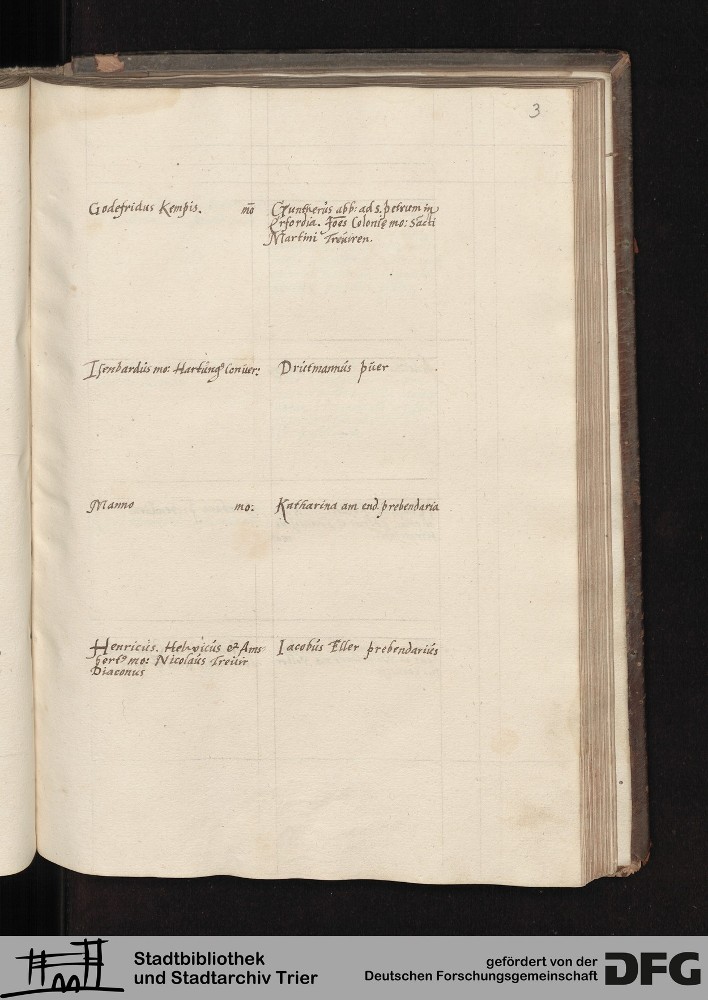 3
Godefridus Kempis. mō Guntherus abb: ad s. petrum in
Erfordia. Joēs Colonię mo: Sācti
Martini Treuiren.
Isenbardus mo: Hartungꝰ Conuer: Drutmannus puer
Manno mo: Katharina am end prebendaria
Henricus. Helwicus & Ams Iacobus Eller prebendarius
bertꝰ mo: Nicolaus Treuir
Diaconus
Stadtbibliothek
und Stadtarchiv Trier
gefördert von der
Deutschen Forschungsgemeinschaft
DFG